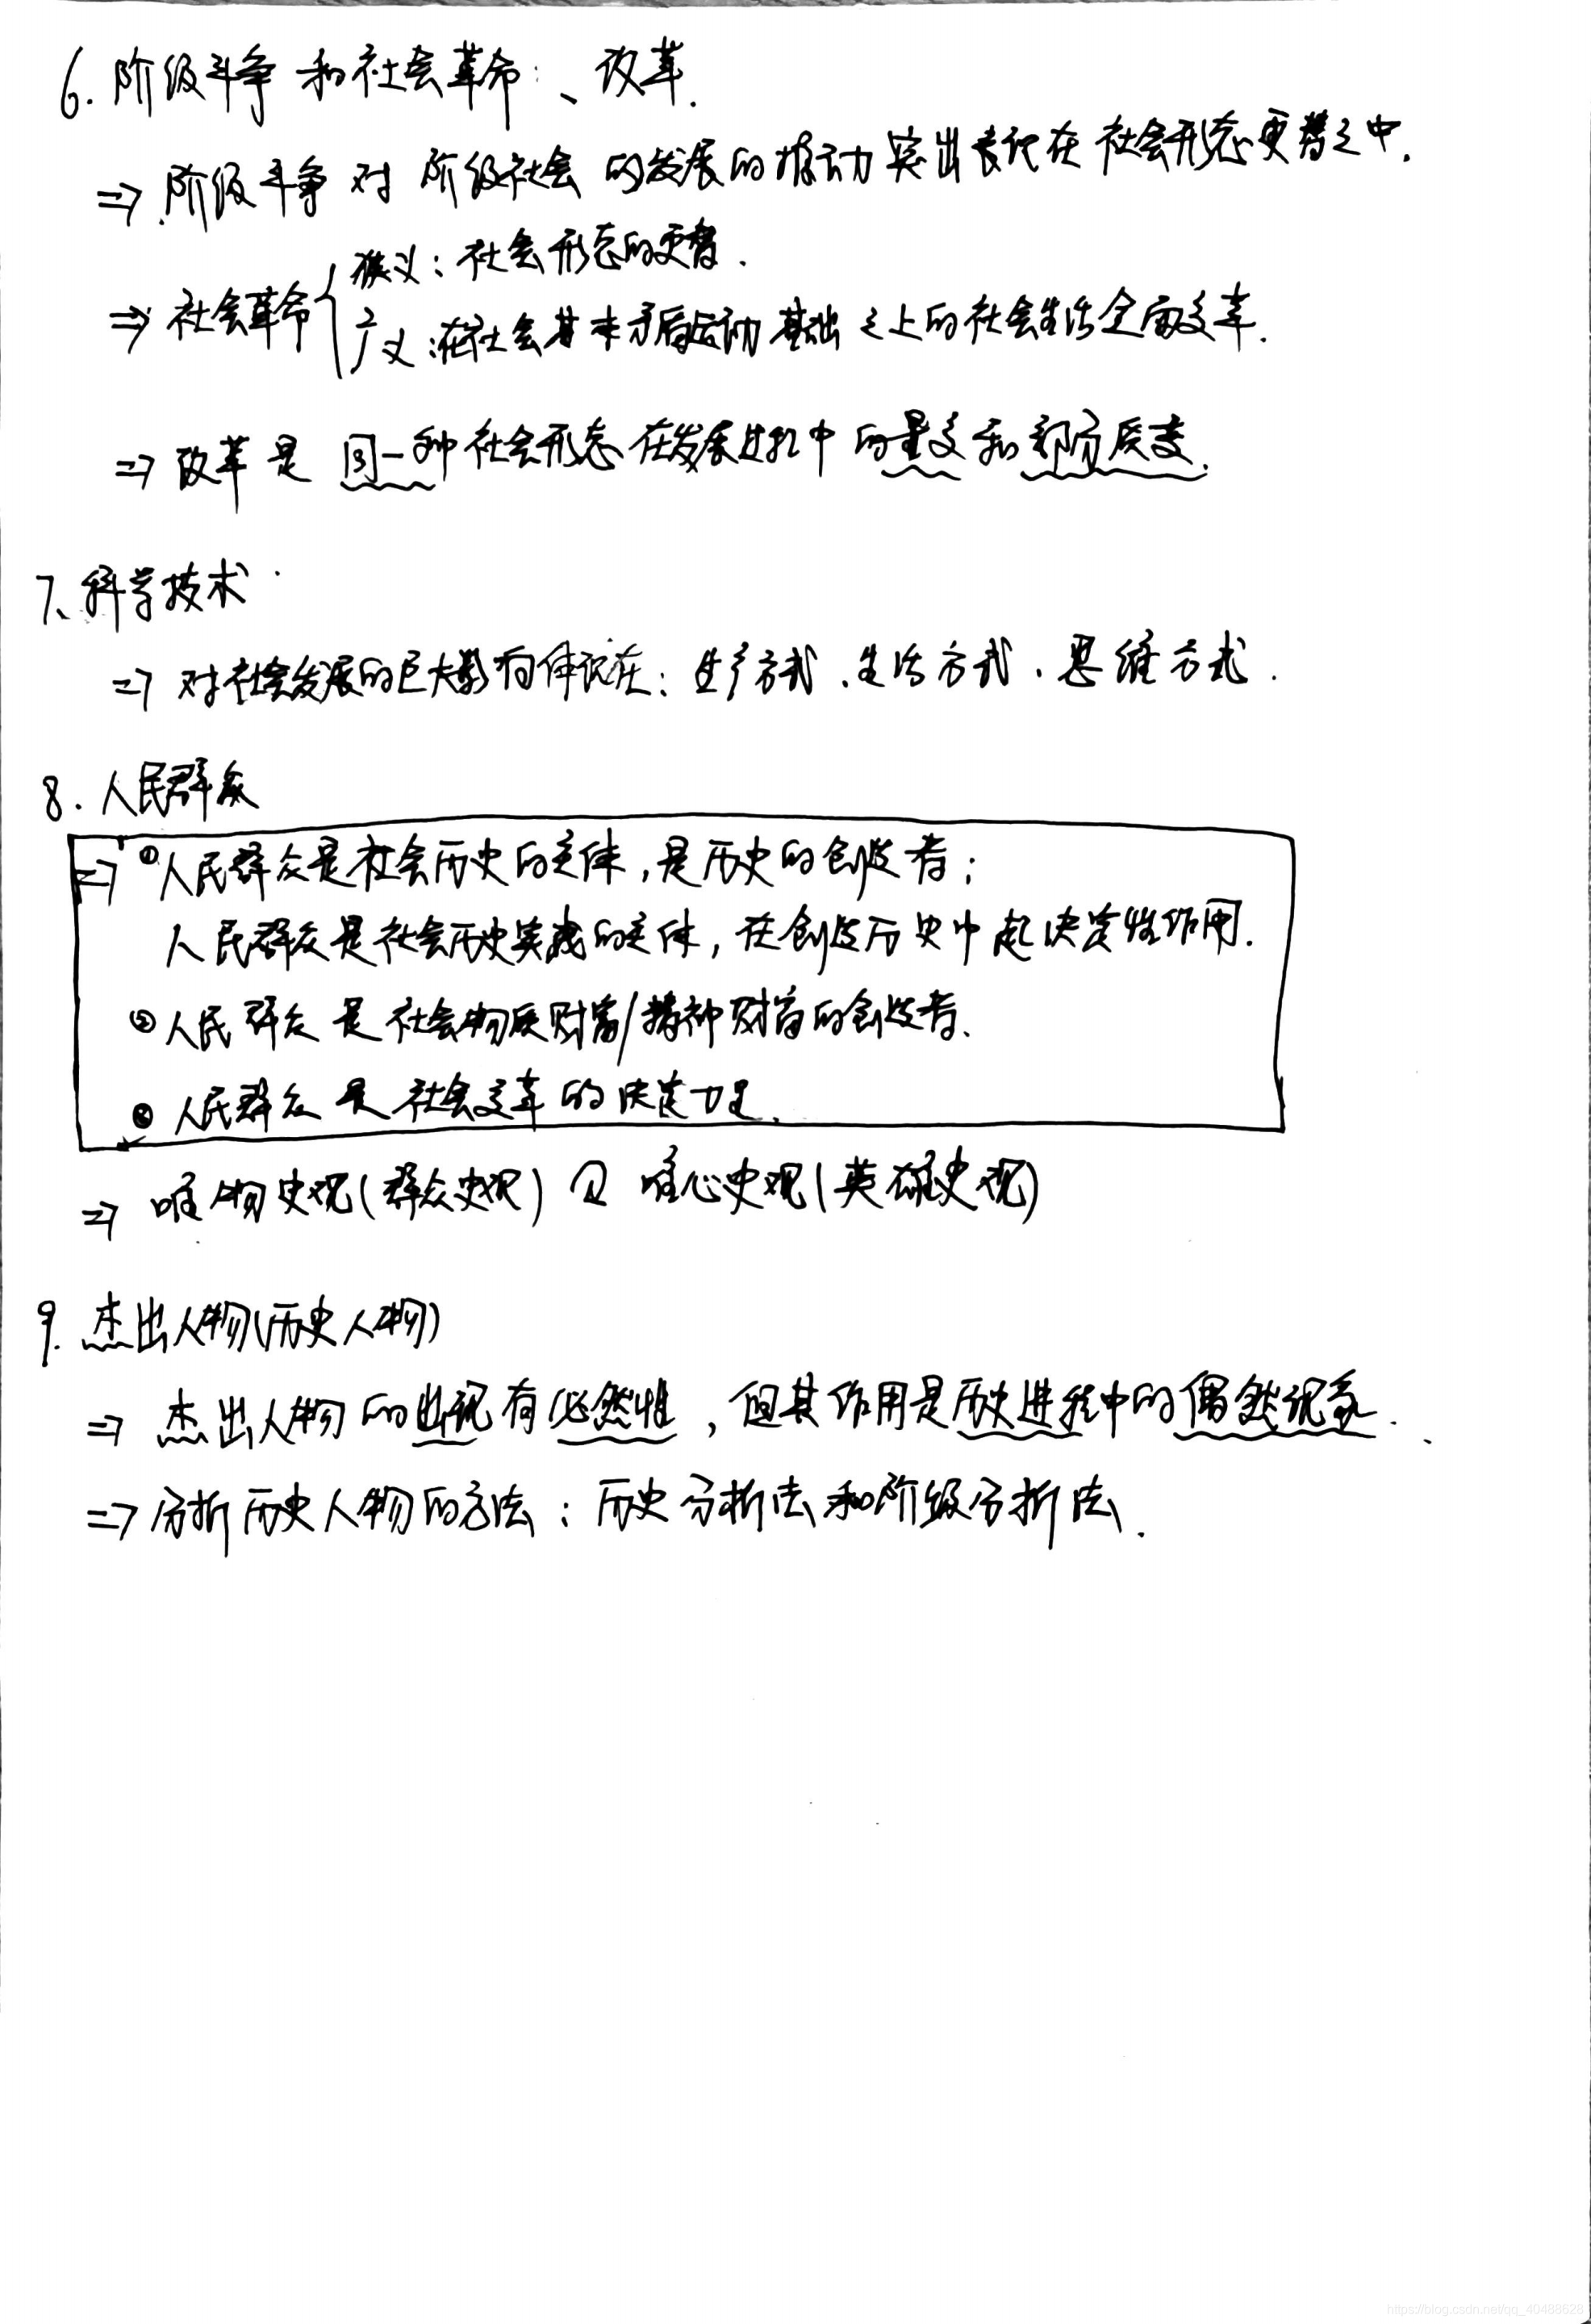 6. 阶级斗争和社会革命:、改革.
⇒ 阶级斗争对阶级社会的发展的推动突出表现在社会形态更替之中.
狭义:社会形态的更替.
⇒ 社会革命
广义:在社会基本矛盾运动基础之上的社会生活全面变革.
⇒ 改革是同一种社会形态在发展过程中的量变和部分质变.
7、科学技术
⇒ 对社会发展的巨大影响体现在:生产方式、生活方式、思维方式.
8. 人民群众
⇒ ①人民群众是社会历史的主体,是历史的创造者;
人民群众是社会历史实践的主体,在创造历史中起决定性作用.
②人民群众是社会物质财富/精神财富的创造者.
③人民群众是社会变革的决定力量.
⇒ 唯物史观(群众史观) 唯心史观(英雄史观)
9. 杰出人物(历史人物)
⇒ 杰出人物的出现有必然性,但其作用是历史进程中的偶然现象.
⇒ 分析历史人物的方法:历史分析法和阶级分析法.
https://blog.csdn.net/qq_40488628